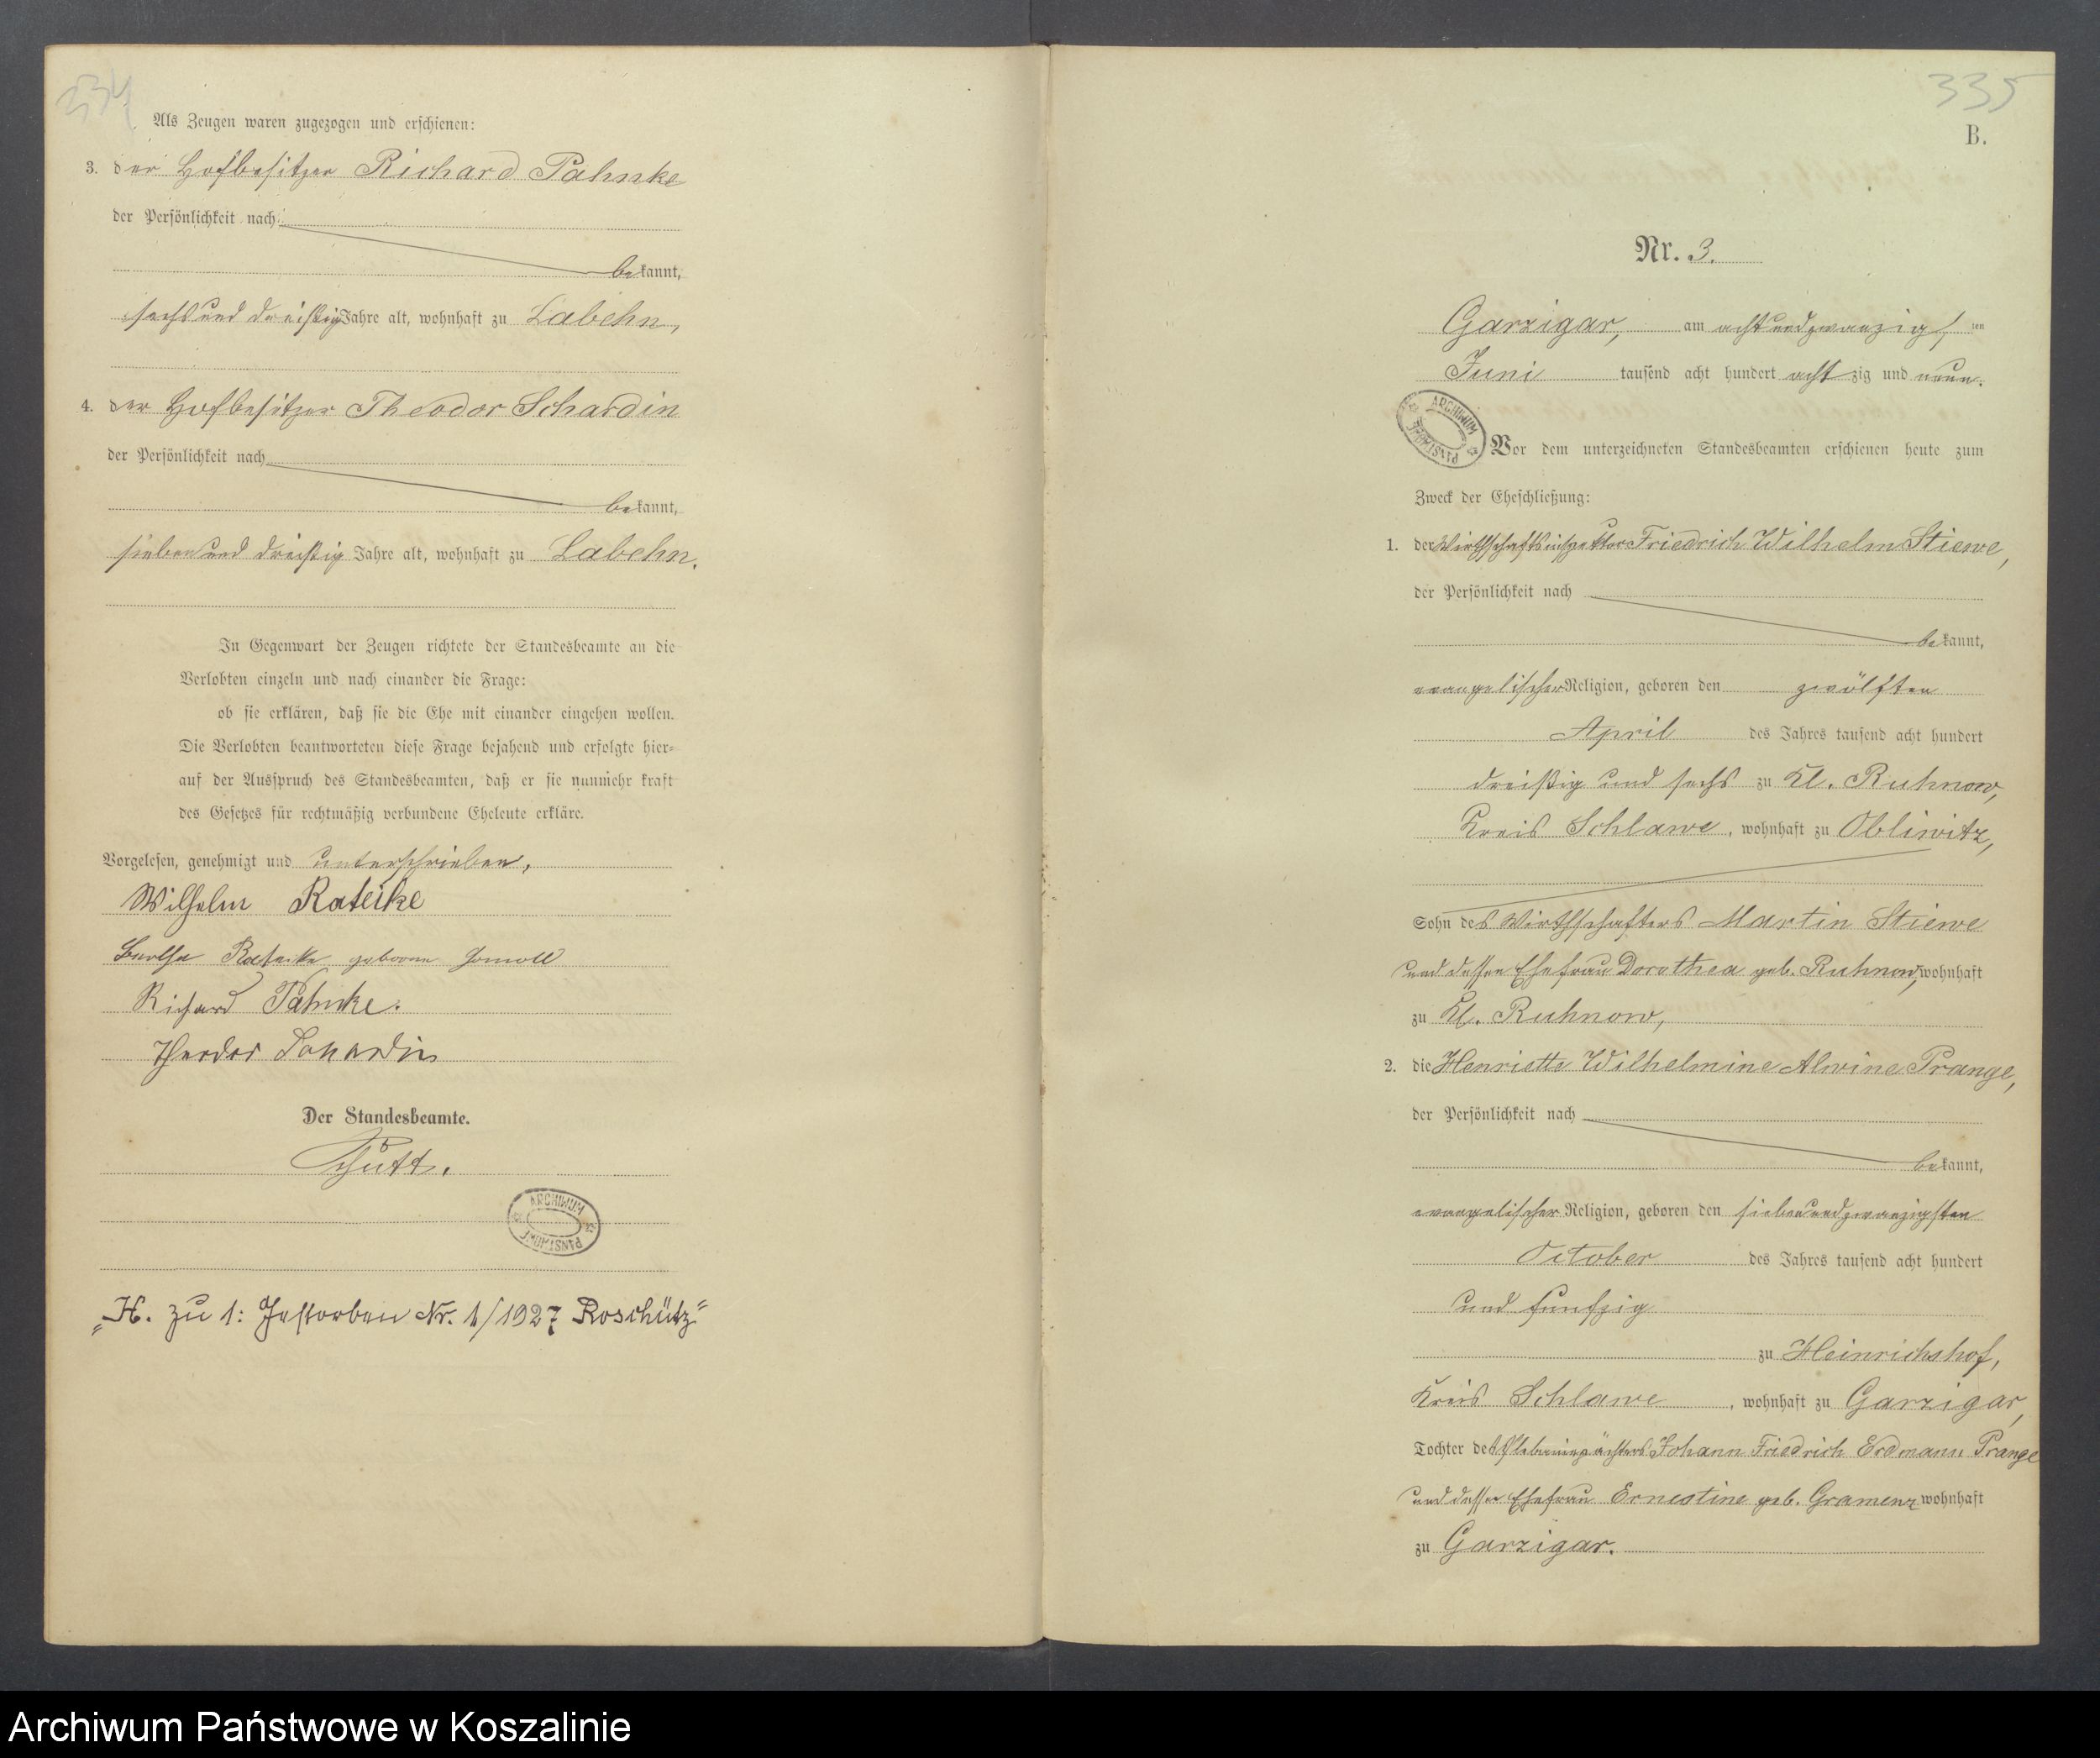 334
Als Zeugen waren zugezogen und erschienen:
3. der Hofbesitzer Richard Pahnke
der Persönlichkeit nach
bekannt,
sechsund dreißig Jahre alt, wohnhaft zu Labehn,
4. der Hofbesitzer Theodor Schardin
der Persönlichkeit nach
bekannt,
siebenund dreißig Jahre alt, wohnhaft zu Labehn.
In Gegenwart der Zeugen richtete der Standesbeamte an die
Verlobten einzeln und nach einander die Frage:
ob sie erklären, daß sie die Ehe mit einander eingehen wollen.
Die Verlobten beantworteten diese Frage bejahend und erfolgte hier=
auf der Ausspruch des Standesbeamten, daß er sie nunmehr kraft
des Gesetzes für rechtmäßig verbundene Eheleute erkläre.
Vorgelesen, genehmigt und unterschrieben,
Wilhelm Rateike
Bertha Rateike geborene Gomoll
Richard Pahnke.
Theodor Schardin
Der Standesbeamte.
ARCHIWUM PAŃSTWOWE
„H. zu 1: Gestorben Nr. 1/1927 Roschütz"
335
B.
Nr. 3.
Garzigar, am achtundzwanzigsten
Juni tausend acht hundert achtzig und neun.
ARCHIWUM PAŃSTWOWE
Vor dem unterzeichneten Standesbeamten erschienen heute zum
Zweck der Eheschließung:
1. der Wirthschaftsinspektor Friedrich Wilhelm Stiewe,
der Persönlichkeit nach
bekannt,
evangelischer Religion, geboren den zwölften
April des Jahres tausend acht hundert
dreißig und sechs zu Kl. Ruhnow,
Kreis Schlawe, wohnhaft zu Obliwitz,
Sohn des Wirthschafters Martin Stiewe
und dessen Ehefrau Dorothea geb. Ruhnow, wohnhaft
zu Kl. Ruhnow,
2. die Henriette Wilhelmine Alwine Prange,
der Persönlichkeit nach
bekannt,
evangelischer Religion, geboren den siebenundzwanzigsten
October des Jahres tausend acht hundert
und funfzig
zu Heinrichshof,
Kreis Schlawe, wohnhaft zu Garzigar,
Tochter des Johann Friedrich Erdmann Prange
und dessen Ehefrau Ernestine geb. Gramenz wohnhaft
zu Garzigar.
Archiwum Państwowe w Koszalinie